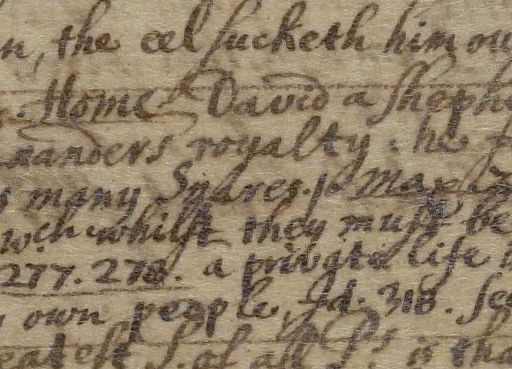 n, the eel sucketh him ou
Home David a sheph
nanders royalty: he
many Snares. p. Max
wch whilst they must be
277. 278. a private life
own people, Id. 318. Se
eatest S. of all is tha